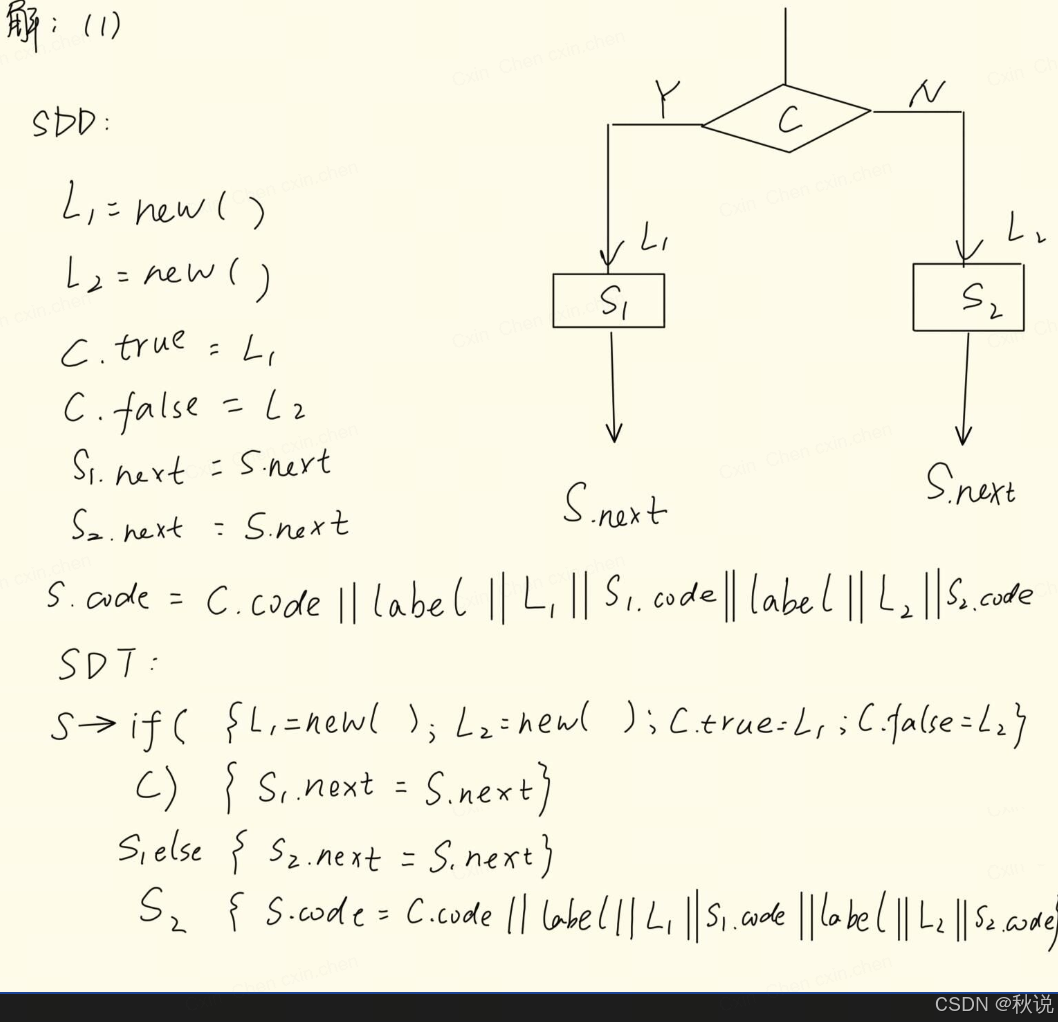 解：(1)
SDD:
L₁ = new ( )
L₂ = new ( )
C.true = L₁
C.false = L₂
S₁.next = S.next
S₂.next = S.next
Y
C
N
L₁
L₂
S₁
S₂
S.next
S.next
S.code = C.code || label || L₁ || S₁.code || label || L₂ || S₂.code
SDT:
S → if ( {L₁=new( ); L₂=new( ); C.true=L₁; C.false=L₂}
C) { S₁.next = S.next}
S₁ else { S₂.next = S.next}
S₂ { S.code = C.code || label || L₁ || S₁.code || label || L₂ || S₂.code}
CSDN @秋说